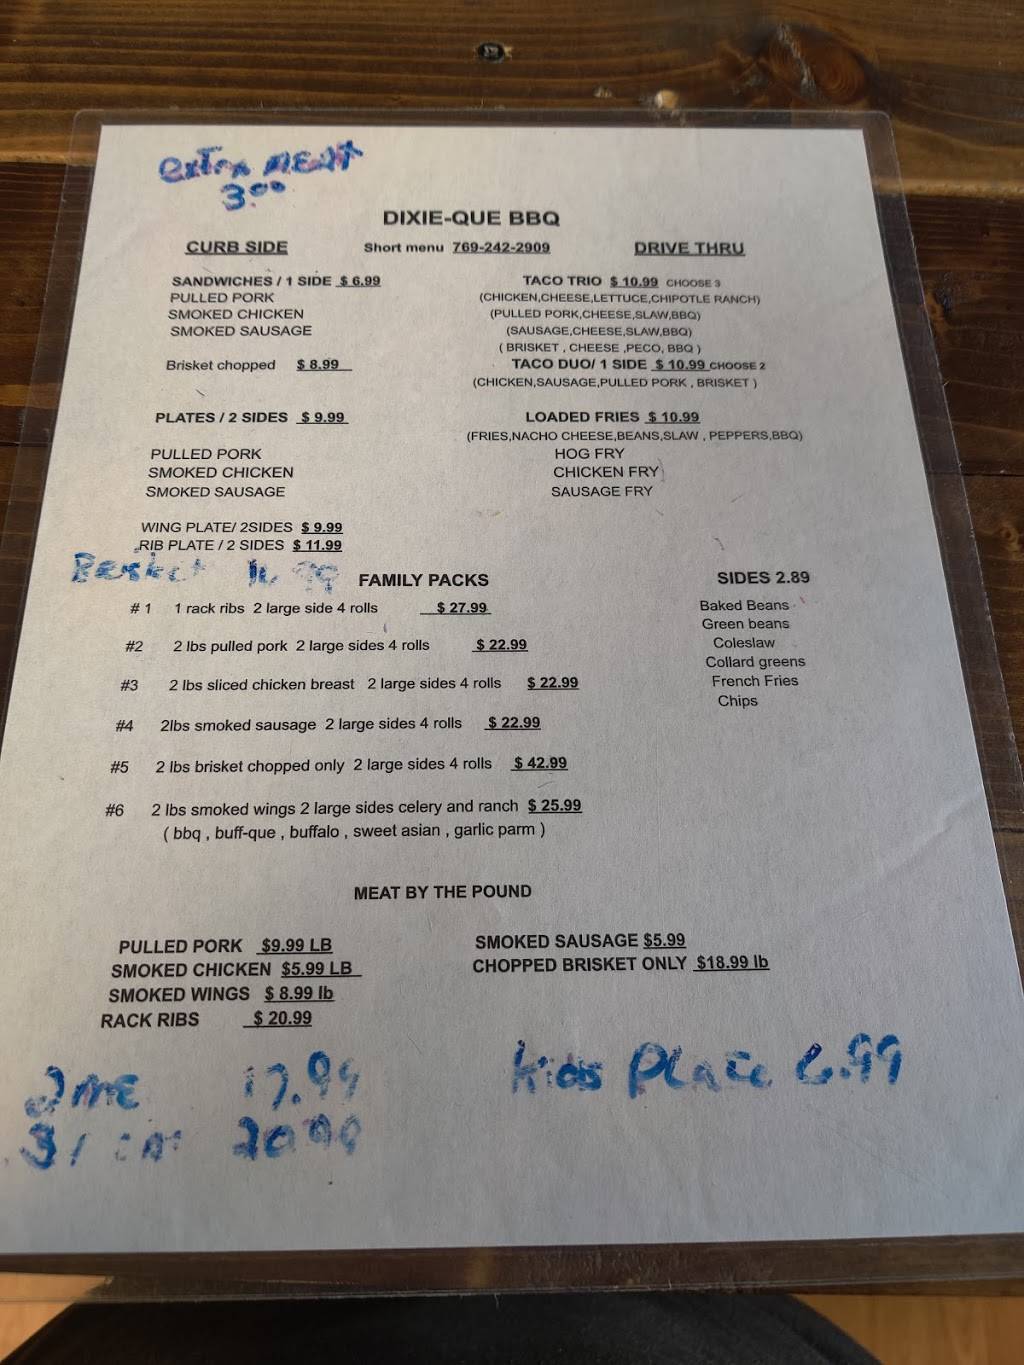 extra MEAT
3.00
DIXIE-QUE BBQ
CURB SIDE Short menu 769-242-2909 DRIVE THRU
SANDWICHES / 1 SIDE $ 6.99
PULLED PORK
SMOKED CHICKEN
SMOKED SAUSAGE
Brisket chopped $ 8.99
PLATES / 2 SIDES $ 9.99
PULLED PORK
SMOKED CHICKEN
SMOKED SAUSAGE
WING PLATE/ 2SIDES $ 9.99
RIB PLATE / 2 SIDES $ 11.99
TACO TRIO $ 10.99 CHOOSE 3
(CHICKEN,CHEESE,LETTUCE,CHIPOTLE RANCH)
(PULLED PORK,CHEESE,SLAW,BBQ)
(SAUSAGE,CHEESE,SLAW,BBQ)
( BRISKET , CHEESE ,PECO, BBQ )
TACO DUO/ 1 SIDE $ 10.99 CHOOSE 2
(CHICKEN,SAUSAGE,PULLED PORK , BRISKET )
LOADED FRIES $ 10.99
(FRIES,NACHO CHEESE,BEANS,SLAW , PEPPERS,BBQ)
HOG FRY
CHICKEN FRY
SAUSAGE FRY
FAMILY PACKS
# 1 1 rack ribs 2 large side 4 rolls $ 27.99
#2 2 lbs pulled pork 2 large sides 4 rolls $ 22.99
#3 2 lbs sliced chicken breast 2 large sides 4 rolls $ 22.99
#4 2lbs smoked sausage 2 large sides 4 rolls $ 22.99
#5 2 lbs brisket chopped only 2 large sides 4 rolls $ 42.99
#6 2 lbs smoked wings 2 large sides celery and ranch $ 25.99
( bbq , buff-que , buffalo , sweet asian , garlic parm )
SIDES 2.89
Baked Beans
Green beans
Coleslaw
Collard greens
French Fries
Chips
MEAT BY THE POUND
PULLED PORK $9.99 LB
SMOKED CHICKEN $5.99 LB
SMOKED WINGS $ 8.99 lb
RACK RIBS $ 20.99
SMOKED SAUSAGE $5.99
CHOPPED BRISKET ONLY $18.99 lb
17.99
20.99
Kids Plate 6.99